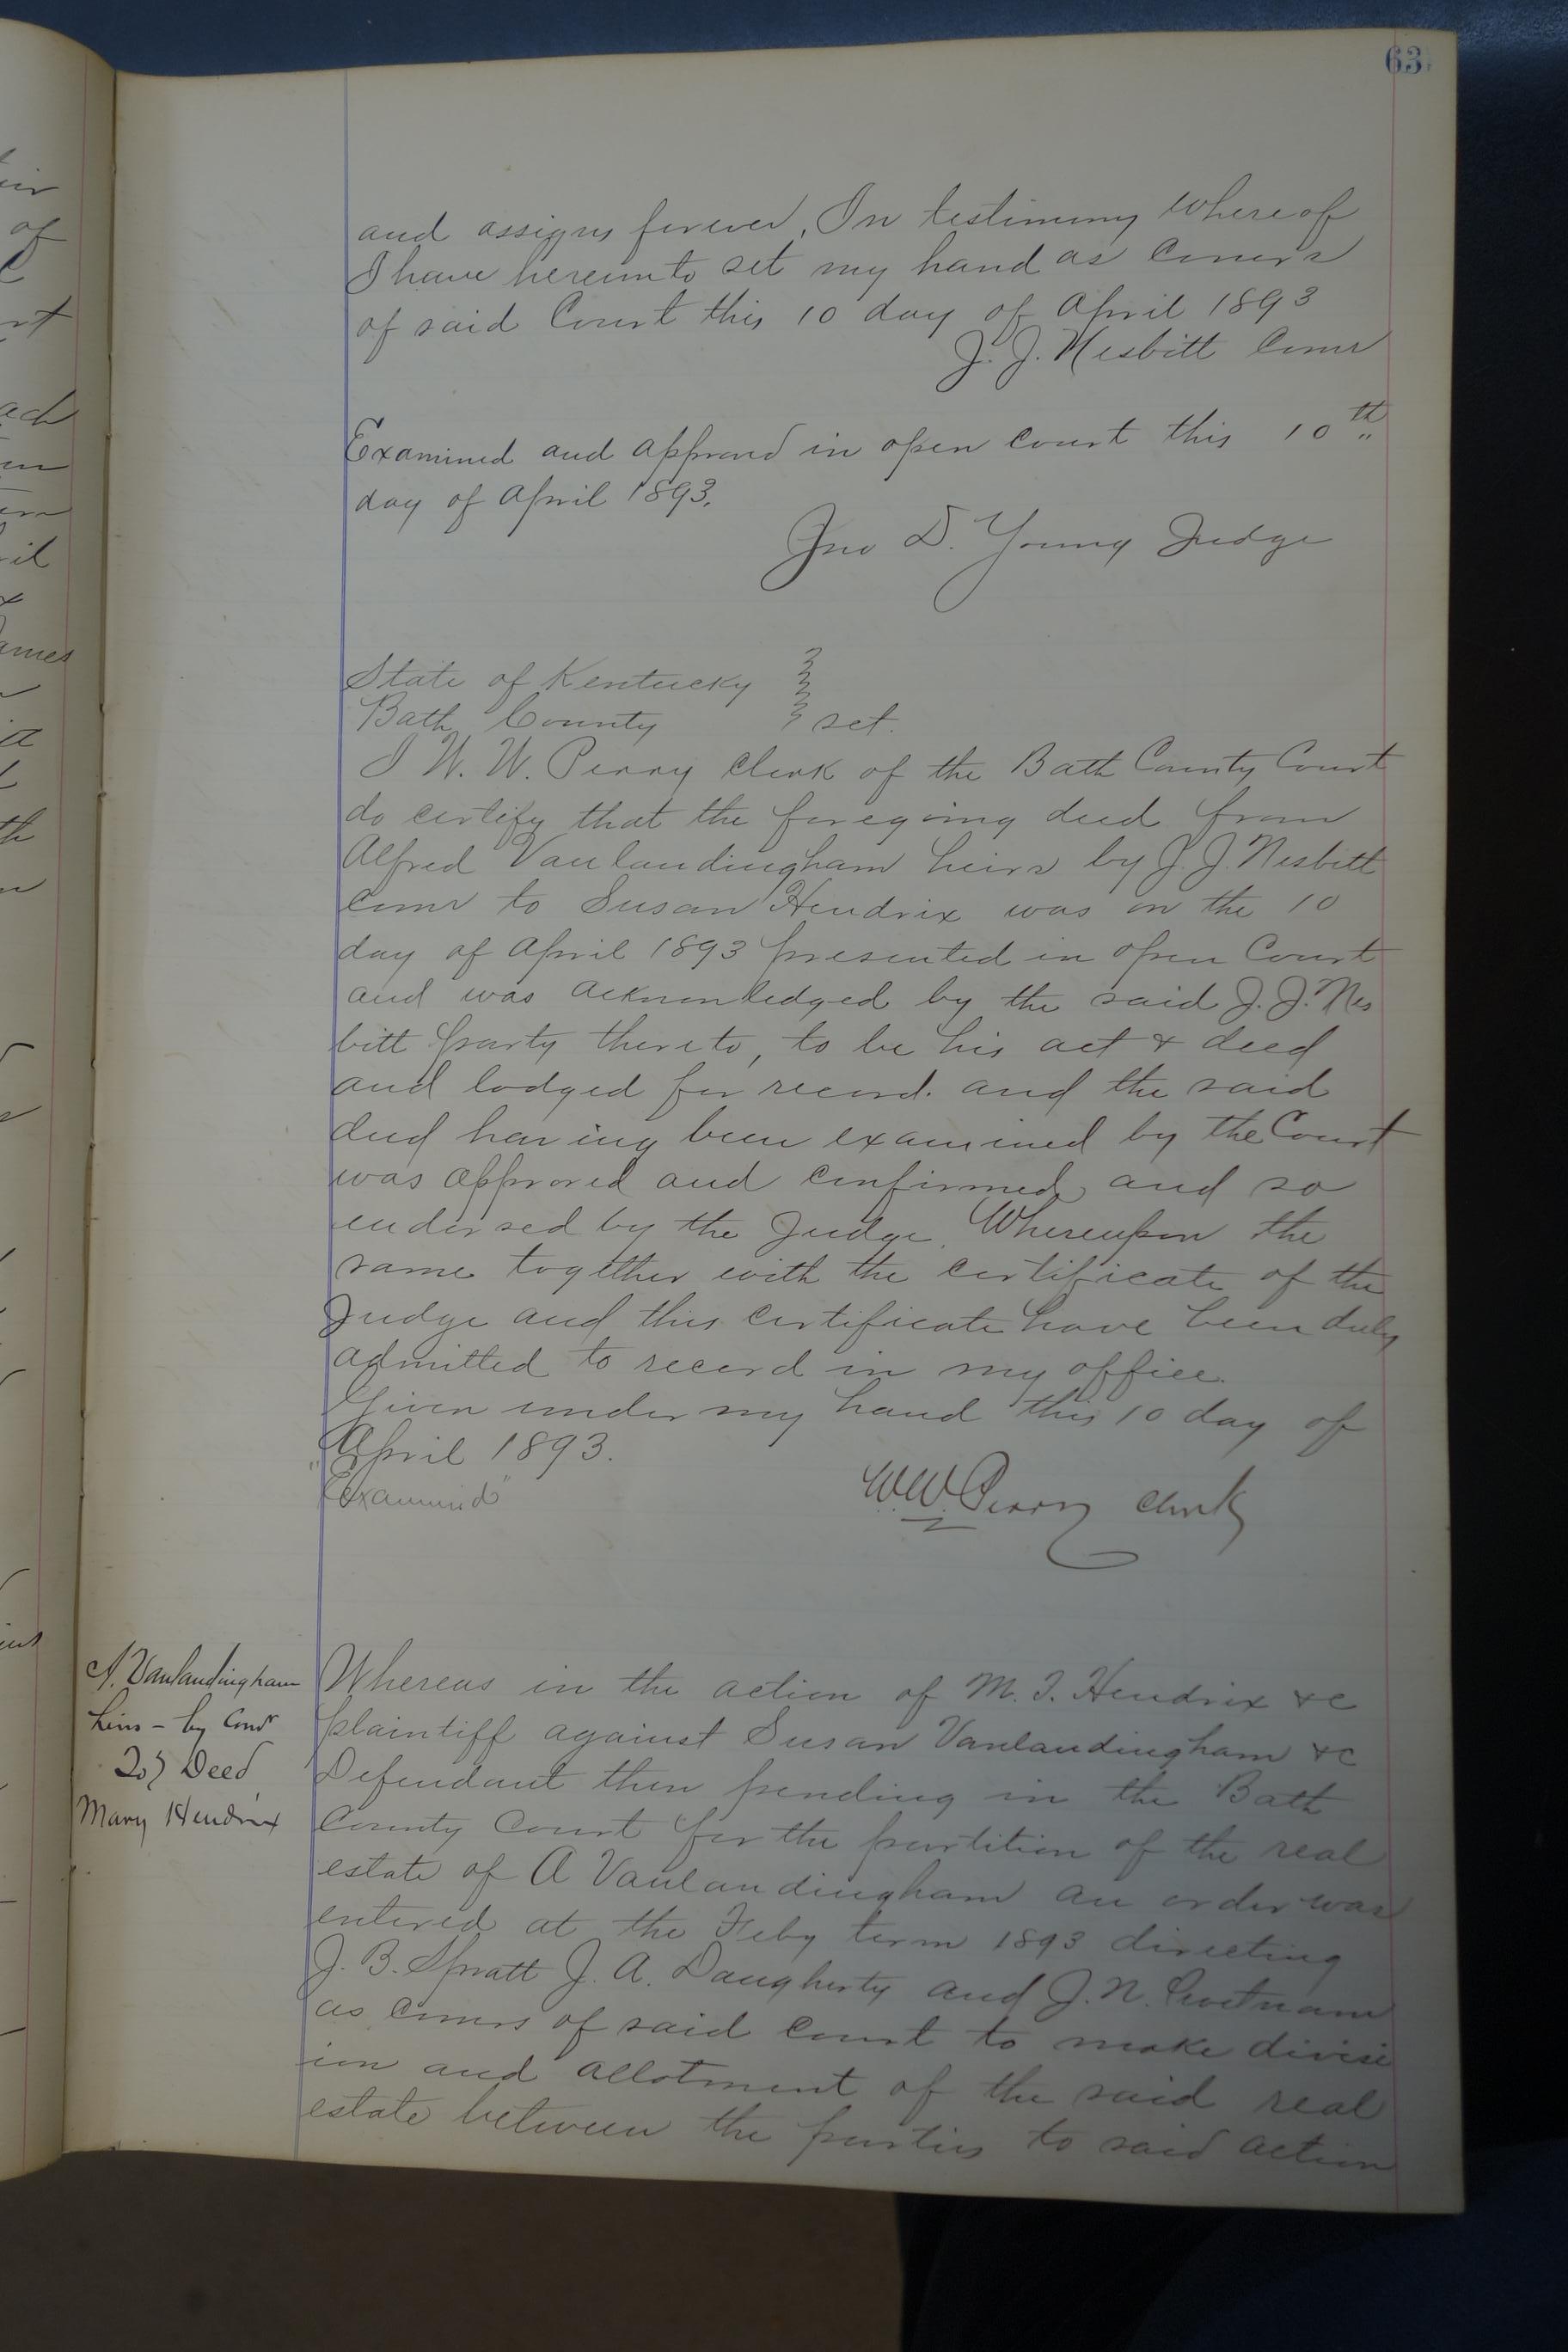 63
and assigns forever, In testimony whereof
I have hereunto set my hand as Comr
of said Court this 10 day of April 1893
J. J. Nesbitt Comr
Examined and approved in open court this 10th
day of April 1893.
Jno D. Young Judge
State of Kentucky
Bath County } sct.
I W. W. Perry Clerk of the Bath County Court
do certify that the foregoing deed from
Alfred Vanlandingham heirs by J. J. Nesbitt
Comr to Susan Hendrix was on the 10
day of April 1893 presented in open Court
and was acknowledged by the said J. J. Nes
bitt party thereto, to be his act & deed
and lodged for record. and the said
deed having been examined by the Court
was approved and confirmed and so
endorsed by the Judge. Whereupon the
same together with the certificate of the
Judge and this certificate have been duly
admitted to record in my office.
Given under my hand this 10 day of
April 1893.
"Examined"
W.W. Perry Clerk
A. Vanlandingham
heirs - by Comr
To } Deed
Mary Hendrix
Whereas in the action of M. T. Hendrix &c
plaintiff against Susan Vanlandingham &c
Defendant then pending in the Bath
County Court for the partition of the real
estate of A Vanlandingham an order was
entered at the Feby term 1893 directing
J. B. Spratt J. A. Daugherty and J. N.
as comrs of said court to make divisi
ion and allotment of the said real
estate between the parties to said action